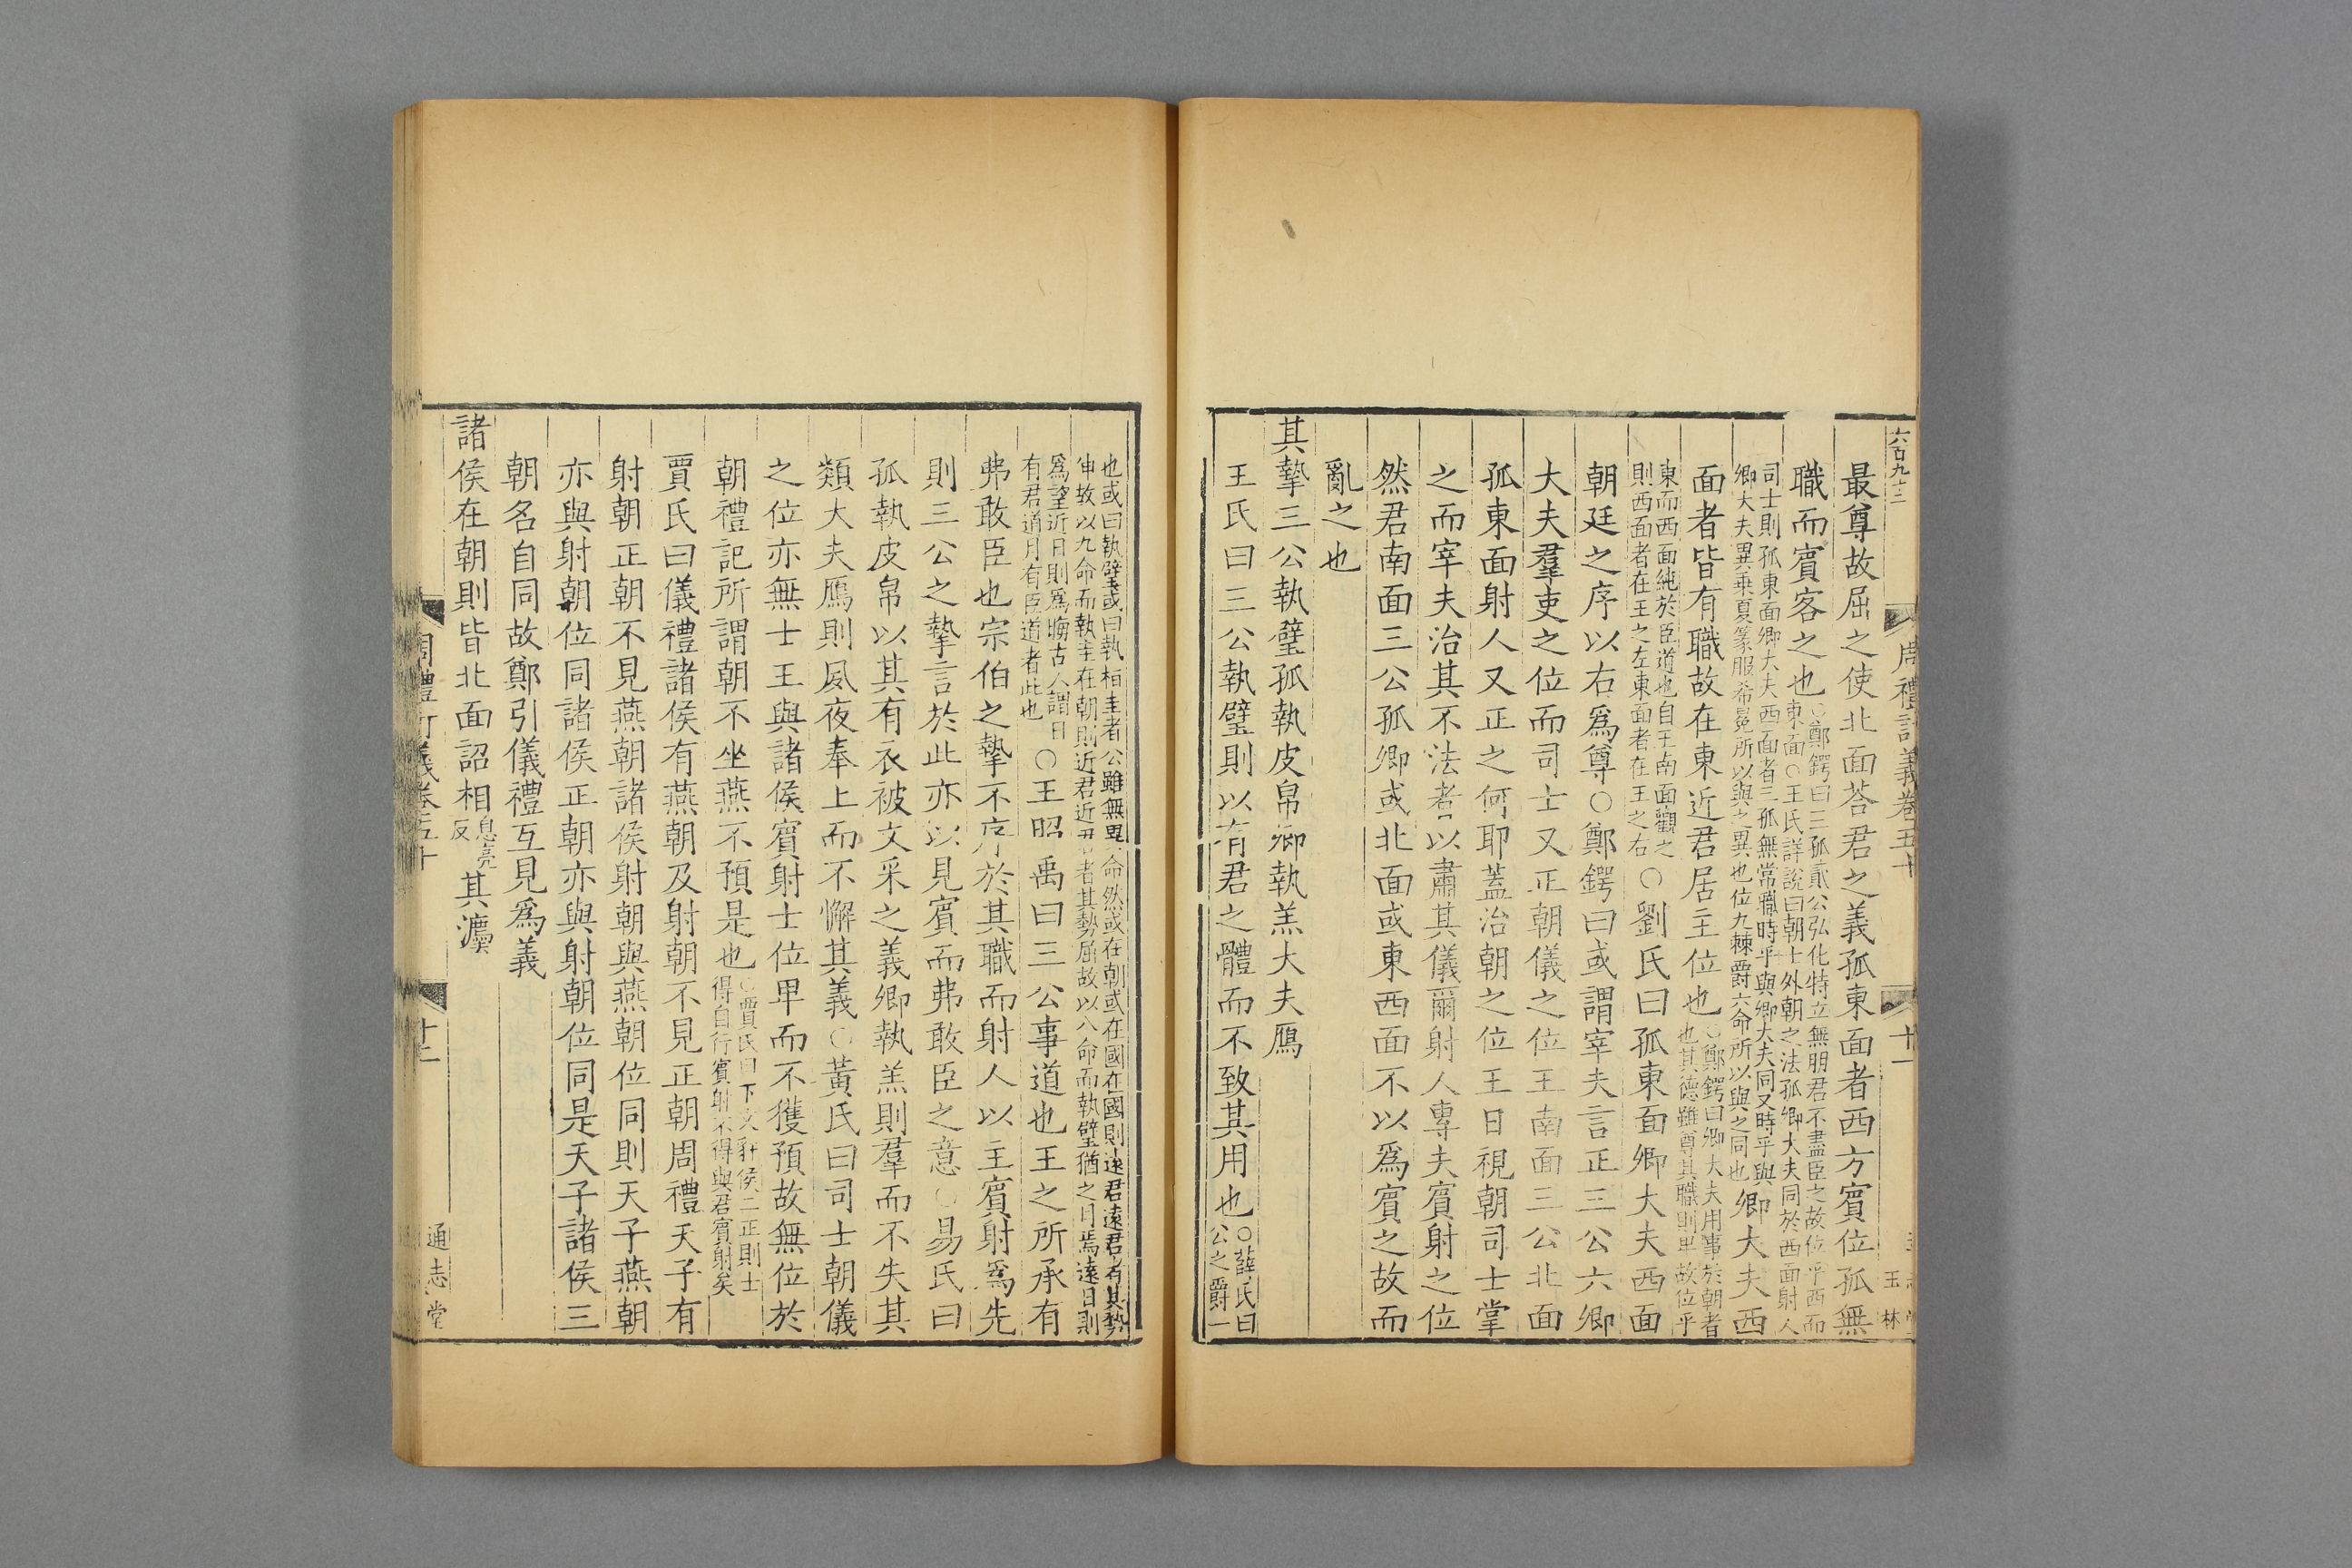 六百九十二
周禮訂義卷五十
十一
玉林
最尊故屈之使北面荅君之義孤東面者西方賔位孤無
職而賔客之也○鄭鍔曰三孤貳公弘化特立無朋君不盡臣之故位乎西而東面○王氏詳說曰朝士外朝之法孤卿大夫同於西面射人
司士則孤東面卿大夫西面者三孤無常職時乎與卿大夫同又時乎與卿大夫異乗夏篆服希冕所以與之異也位九棘爵六命所以與之同也卿大夫西
面者皆有職故在東近君居主位也○鄭鍔曰卿大夫用事於朝者也其德雖尊其職則卑故位乎
東而西面純於臣道也自王南面觀之則西面者在王之左東面者在王之右○劉氏曰孤東面卿大夫西面
朝廷之序以右爲尊○鄭鍔曰或謂宰夫言正三公六卿
大夫羣吏之位而司士又正朝儀之位王南面三公北面
孤東面射人又正之何耶蓋治朝之位王日視朝司士掌
之而宰夫治其不法者以肅其儀爾射人專夫賔射之位
然君南面三公孤卿或北面或東西面不以爲賔之故而
亂之也
其摯三公執璧孤執皮帛卿執羔大夫鴈
王氏曰三公執璧則以有君之體而不致其用也○薛氏曰公之爵一
也或曰執璧或曰執桓圭者公雖無異命然或在朝或在國在國則遠君遠君者其勢
伸故以九命而執圭在朝則近君近君者其勢屈故以八命而執璧猶之月焉遠日則
爲望近日則爲晦古人謂日有君道月有臣道者此也○王昭禹曰三公事道也王之所承有
弗敢臣也宗伯之摯不序於其職而射人以主賔射爲先
則三公之摯言於此亦以見賔而弗敢臣之意○易氏曰
孤執皮帛以其有衣被文采之義卿執羔則羣而不失其
類大夫鴈則夙夜奉上而不懈其義○黃氏曰司士朝儀
之位亦無士王與諸侯賔射士位卑而不獲預故無位於
朝禮記所謂朝不坐燕不預是也○賈氏曰下文豻侯二正則士得自行賔射不得與君賔射矣
賈氏曰儀禮諸侯有燕朝及射朝不見正朝周禮天子有
射朝正朝不見燕朝諸侯射朝與燕朝位同則天子燕朝
亦與射朝位同諸侯正朝亦與射朝位同是天子諸侯三
朝名自同故鄭引儀禮互見爲義
諸侯在朝則皆北面詔相息亮反其灋
周禮訂義卷五十
十二
通志堂